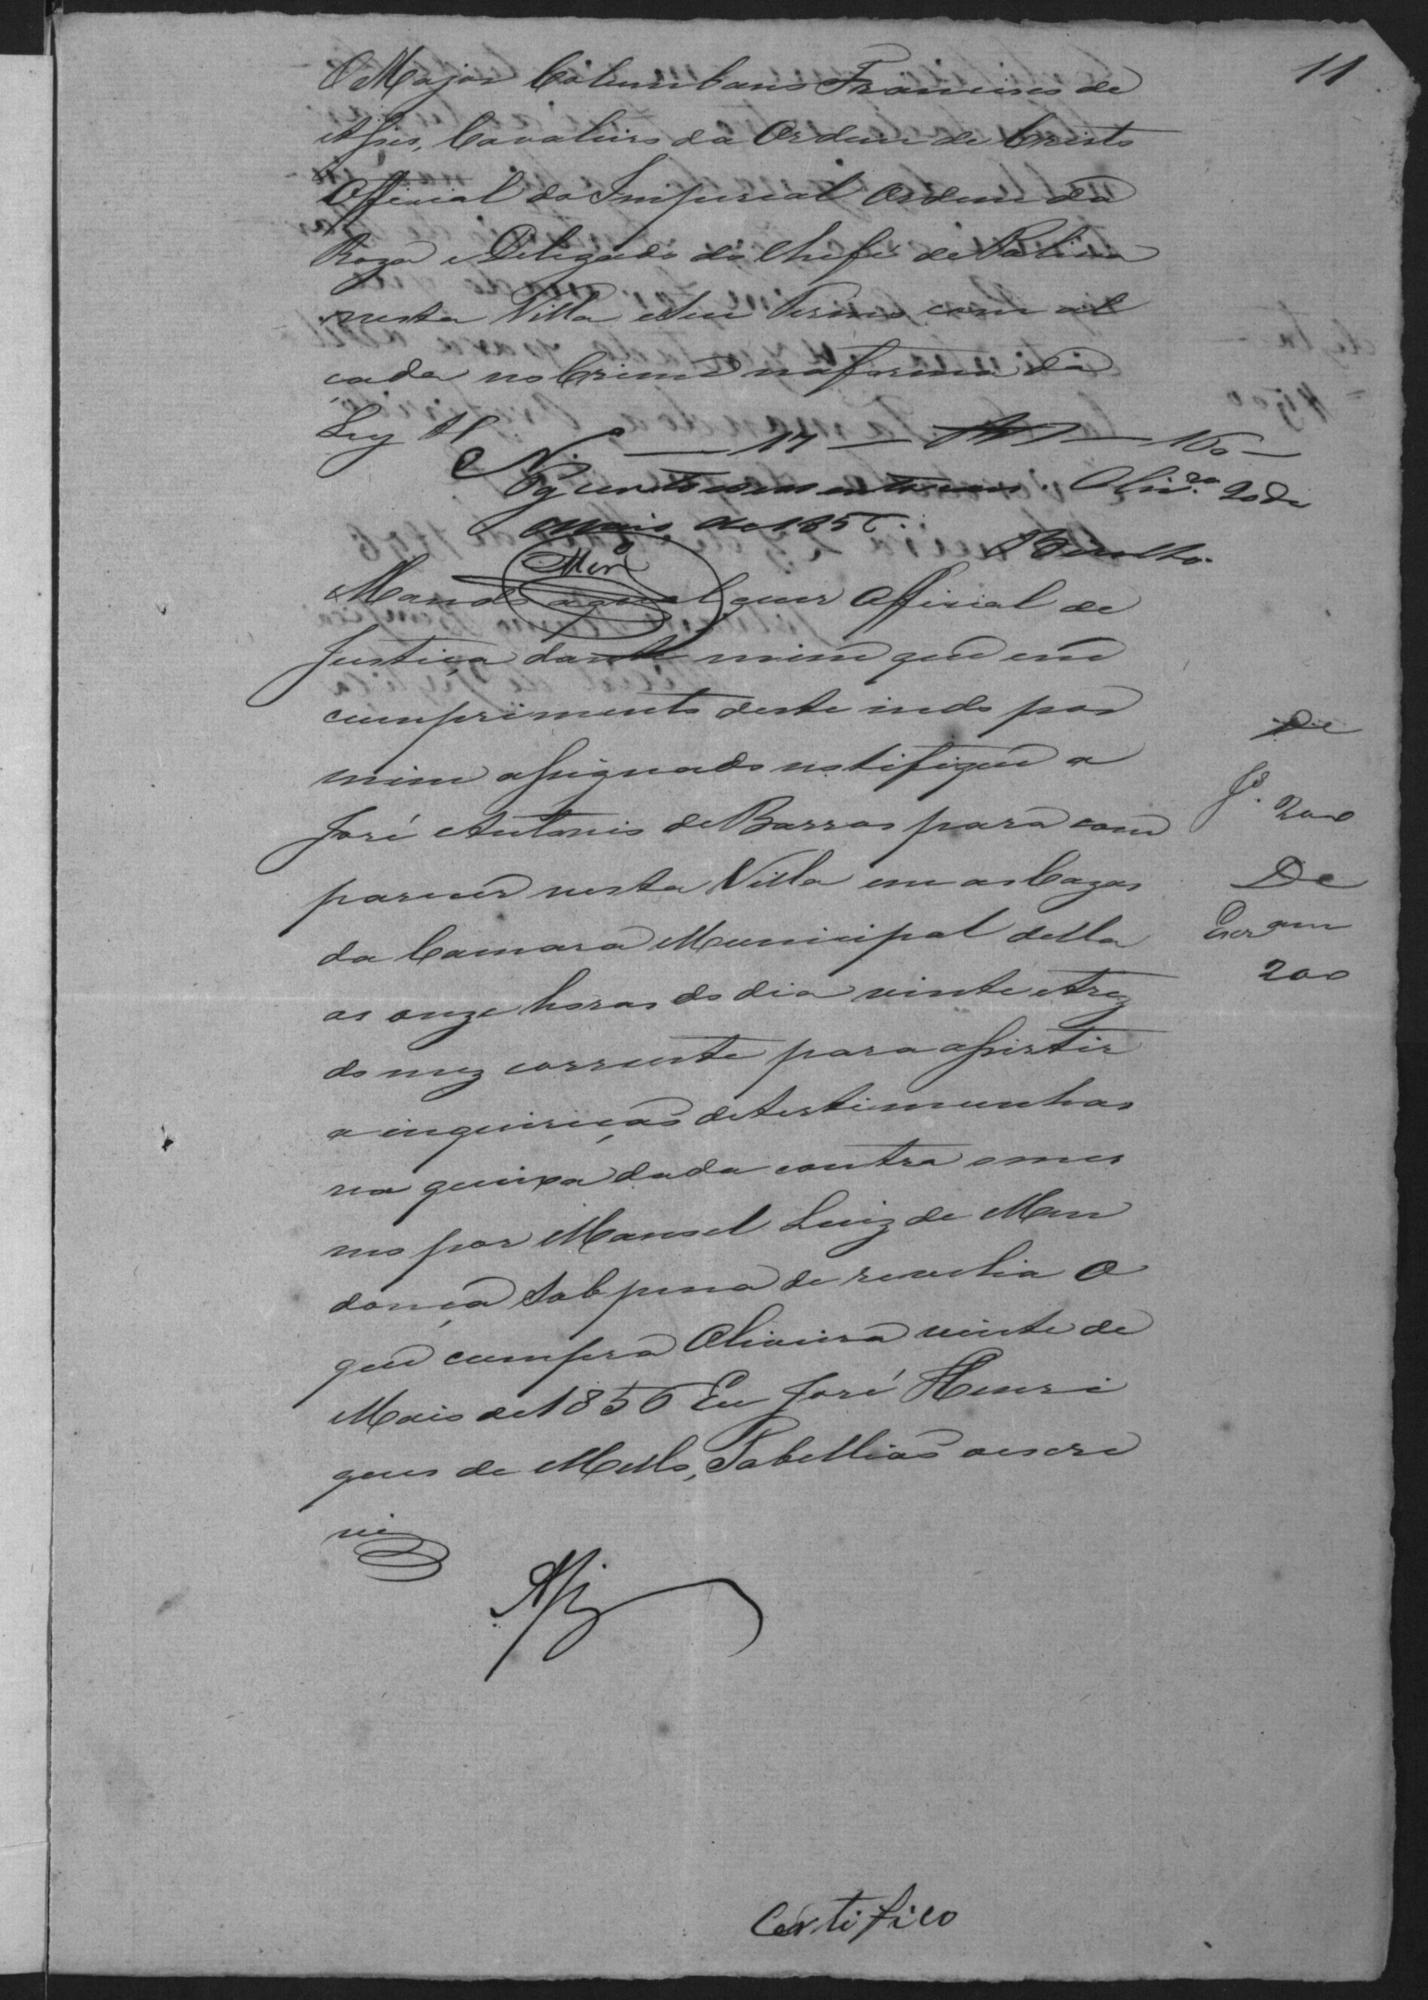 11
O Major Columbano Francisco de
Assis, Cavaleiro da Ordem de Cristo
Official da Imperial Ordem da
Roza e Delegado do Chefe de Policia
nesta Villa e seu Termo com al
çada no Crime na forma da
Ley &
N. 17 160
Pg cento e sessenta reis. Olivra 20 de
Maio de 1856.
Mando a qual quer Official de
Justiça dante mim que em
cumprimento deste indo por
mim assignado notifique a
José Antonio de Barros para com
parecer nesta Villa em as Cazas
da Camara Municipal della
as onze horas do dia vinte e trez
do mez corrente para assistir
a inquirição de testimunhas
na queixa dada contra o mes
mo por Manoel Luiz de Men
donça sob pena de revelia O
que cumpra Oliveira vinte de
Maio de 1856 Eu José Henri
ques de Mello, Tabellião o escre
vi
Assis
De
Js. 200
De
Escram
200
Certifico